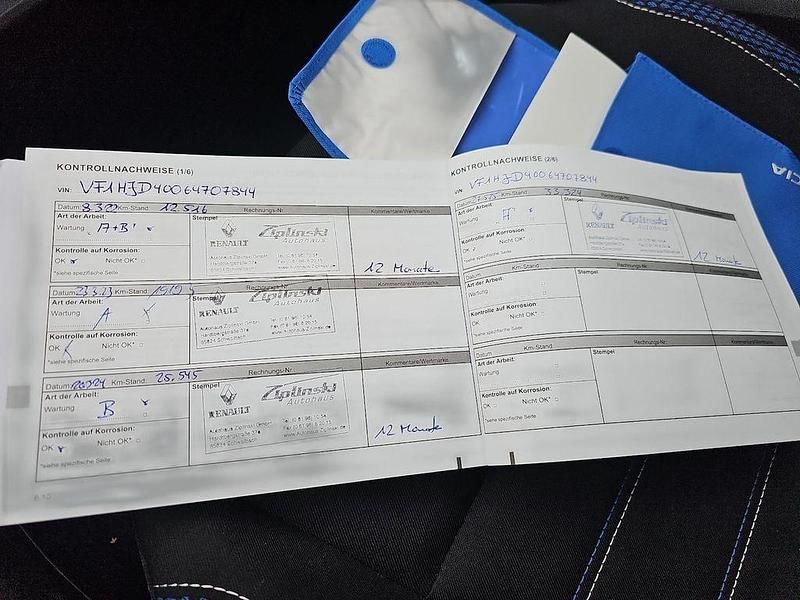 KONTROLLNACHWEISE (1/6)
VIN: VF1HJD40064707844
Datum: 8.3.22 Km-Stand: 12.516 Rechnungs-Nr. Kommentare/Wertmarke
Art der Arbeit: Stempel
Wartung A+B
RENAULT Ziplinski
Autohaus
Kontrolle auf Korrosion:
OK Nicht OK* 12 Monate
*siehe spezifische Seite
Datum: 23.3.23 Km-Stand: Rechnungs-Nr. Kommentare/Wertmarke
Art der Arbeit: Stempel
Wartung A
RENAULT Ziplinski
Autohaus
Kontrolle auf Korrosion:
OK Nicht OK*
*siehe spezifische Seite
Datum: Km-Stand: 25.545 Rechnungs-Nr. Kommentare/Wertmarke
Art der Arbeit: Stempel
Wartung B
RENAULT Ziplinski
Autohaus
Autohaus Ziplinski GmbH
www.Autohaus-Ziplinski.de
Kontrolle auf Korrosion:
OK Nicht OK* 12 Monate
*siehe spezifische Seite
6.10
KONTROLLNACHWEISE (2/6)
VIN: VF1HJD40064707844
Datum: Km-Stand: 33.324 Rechnungs-Nr. Kommentare/Wertmarke
Art der Arbeit: Stempel
Wartung A
RENAULT Ziplinski
Autohaus
Kontrolle auf Korrosion:
OK Nicht OK* 12 Monate
*siehe spezifische Seite
Datum: Km-Stand: Rechnungs-Nr. Kommentare/Wertmarke
Art der Arbeit: Stempel
Wartung
Kontrolle auf Korrosion:
OK Nicht OK*
*siehe spezifische Seite
Datum: Km-Stand: Rechnungs-Nr. Kommentare/Wertmarke
Art der Arbeit: Stempel
Wartung
Kontrolle auf Korrosion:
OK Nicht OK*
*siehe spezifische Seite
CIA